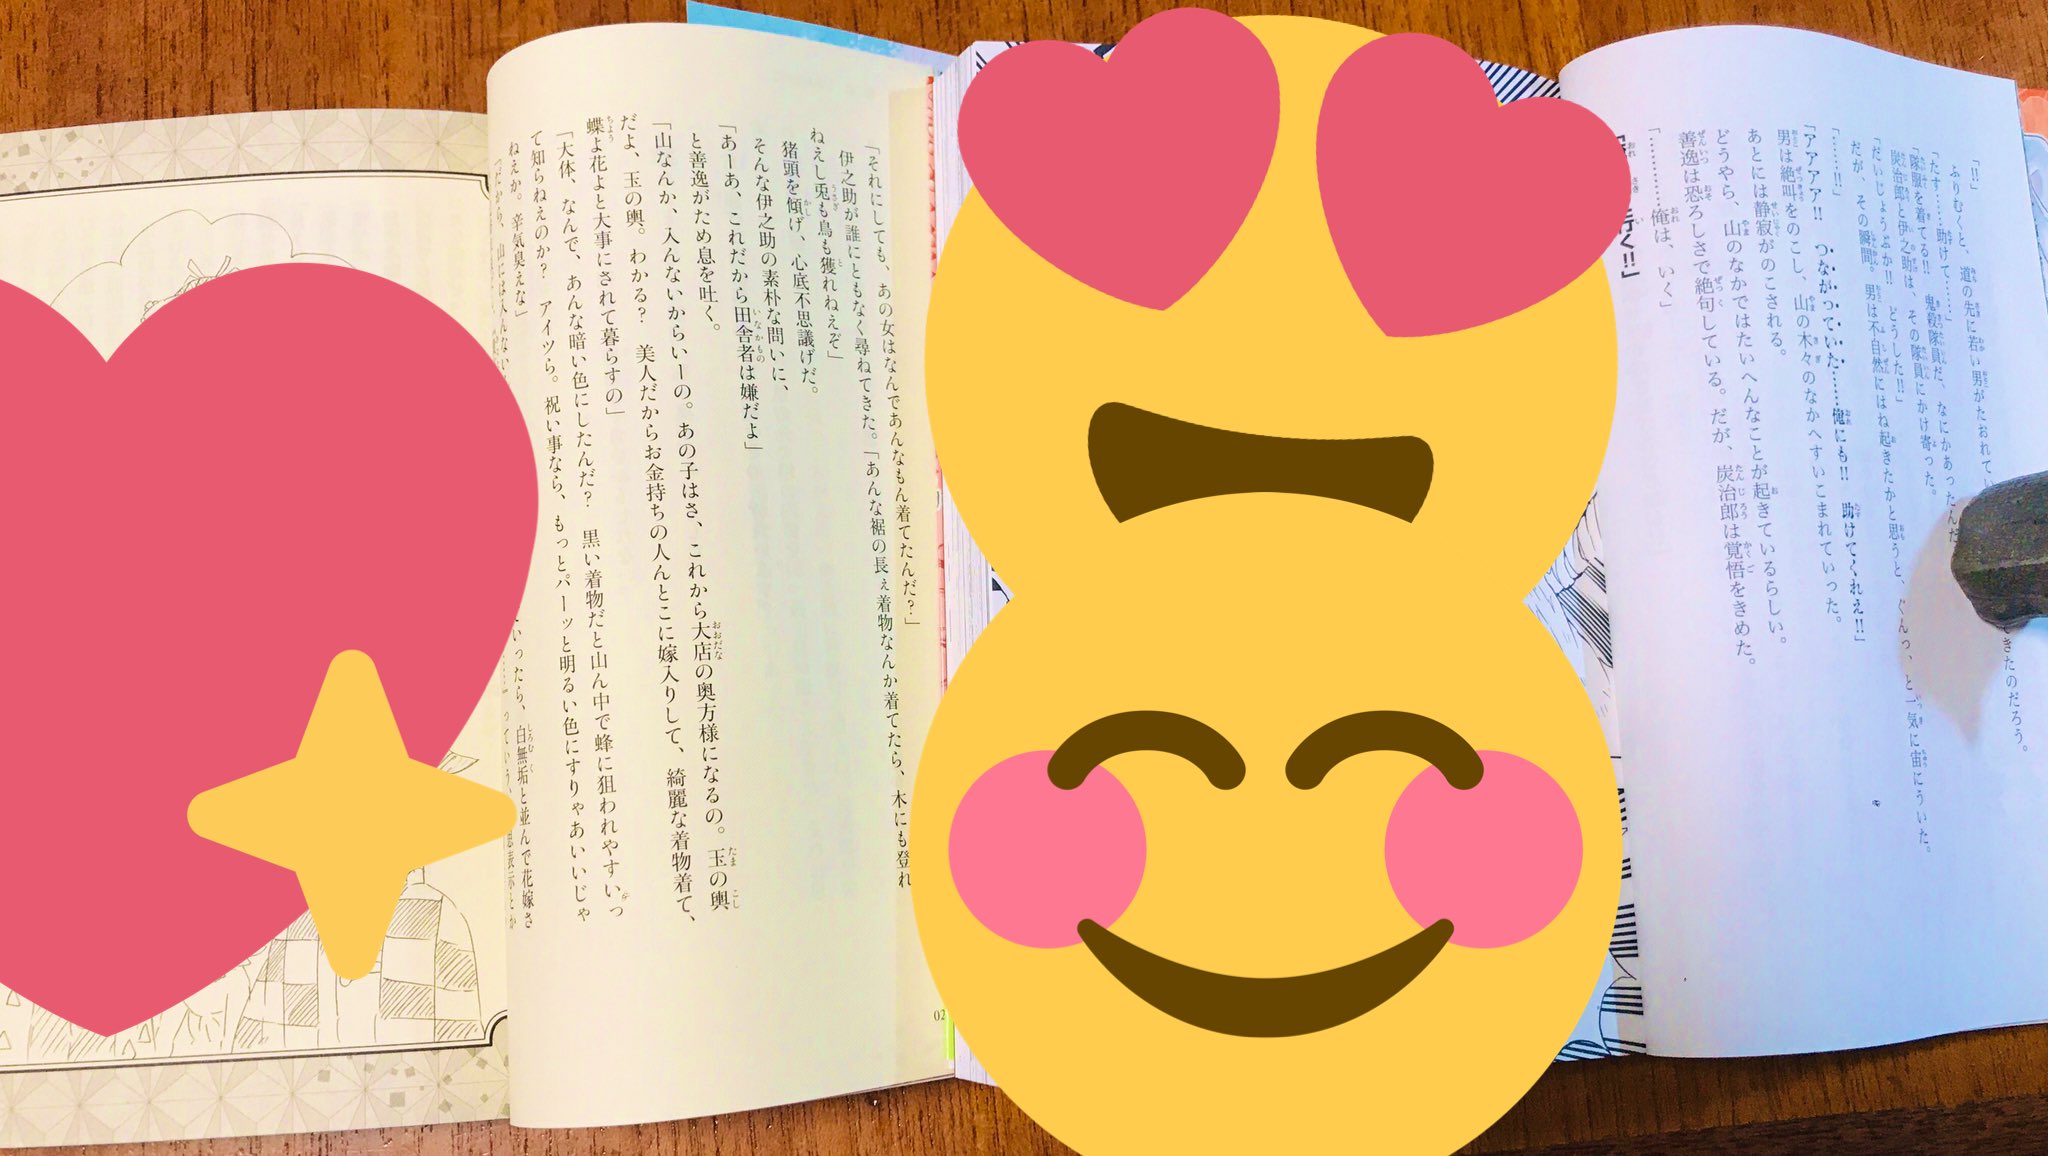 きたのだろう。
「!!」
ふりむくと、道の先に若い男がたおれてい
「たす……助けて……」
「隊服を着てる!!　鬼殺隊員だ、なにかあったんだ
炭治郎と伊之助は、その隊員にかけ寄った。
「だいじょうぶか!!　どうした!!」
だが、その瞬間。男は不自然にはね起きたかと思うと、ぐんっ、と一気に宙にういた。
「……!!」
「アアアア!!　つながっていた……俺にも!!　助けてくれえ!!」
男は絶叫をのこし、山の木々のなかへすいこまれていった。
あとには静寂がのこされる。
どうやら、山のなかではたいへんなことが起きているらしい。
善逸は恐ろしさで絶句している。だが、炭治郎は覚悟をきめた。
「………俺は、いく」
行く!!」
「それにしても、あの女はなんであんなもん着てたんだ?」
伊之助が誰にともなく尋ねてきた。「あんな裾の長ぇ着物なんか着てたら、木にも登れ
ねえし兎も鳥も獲れねえぞ」
猪頭を傾げ、心底不思議げだ。
そんな伊之助の素朴な問いに、
「あーあ、これだから田舎者は嫌だよ」
と善逸がため息を吐く。
「山なんか、入んないからいーの。あの子はさ、これから大店の奥方様になるの。玉の輿
だよ、玉の輿。わかる?　美人だからお金持ちの人んとこに嫁入りして、綺麗な着物着て、
蝶よ花よと大事にされて暮らすの」
「大体、なんで、あんな暗い色にしたんだ?　黒い着物だと山ん中で蜂に狙われやすいっ
て知らねえのか?　アイツら。祝い事なら、もっとパーッと明るい色にすりゃあいいじゃ
ねえか。辛気臭えな」
「だから、山には入んない
いったら、白無垢と並んで花嫁さ
02